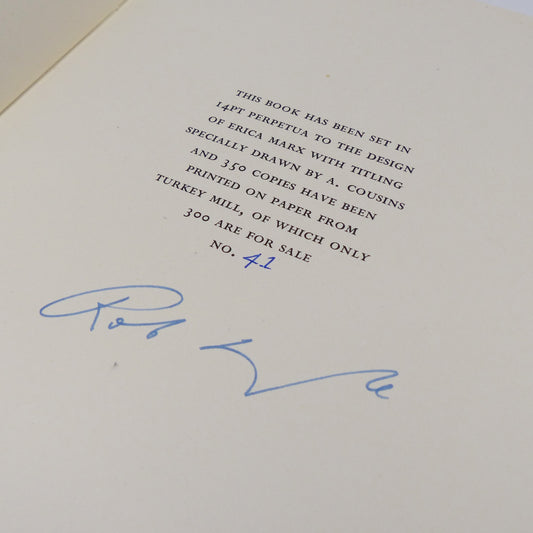 THIS BOOK HAS BEEN SET IN
14PT PERPETUA TO THE DESIGN
OF ERICA MARX WITH TITLING
SPECIALLY DRAWN BY A. COUSINS
AND 350 COPIES HAVE BEEN
PRINTED ON PAPER FROM
TURKEY MILL, OF WHICH ONLY
300 ARE FOR SALE
NO. 41